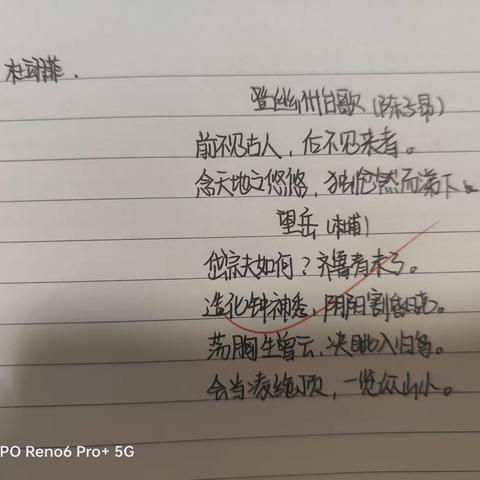 杜翊菲.
登幽州台歌(陈子昂)
前不见古人，后不见来者。
念天地之悠悠，独怆然而涕下。
望岳(杜甫)
岱宗夫如何？齐鲁青未了。
造化钟神秀，阴阳割昏晓。
荡胸生曾云，决眦入归鸟。
会当凌绝顶，一览众山小。
PO Reno6 Pro+ 5G